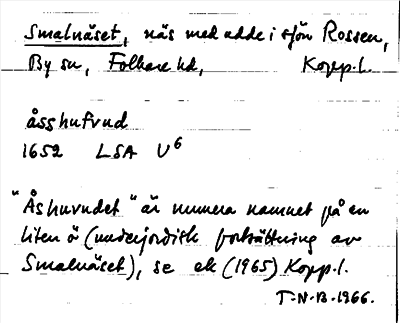 Smalnäset, näs med udde i sjön Rossen,
By sn, Folkare hd, Kopp.l.
åsshufvud
1652 LSA U6
"Åshuvudet" är numera namnet på en
liten ö (underjordisk fortsättning av
Smalnäset), se ek (1965) Kopp.l.
T.N.B. 1966.